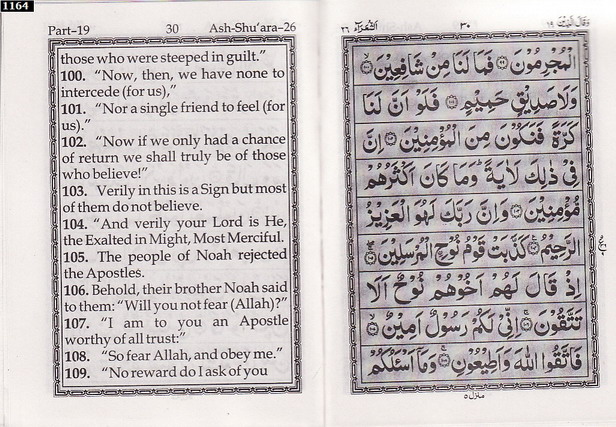 1164
Part-19 30 Ash-Shu’ara-26
those who were steeped in guilt.”
100. “Now, then, we have none to
intercede (for us),”
101. “Nor a single friend to feel (for
us).”
102. “Now if we only had a chance
of return we shall truly be of those
who believe!”
103. Verily in this is a Sign but most
of them do not believe.
104. “And verily your Lord is He,
the Exalted in Might, Most Merciful.
105. The people of Noah rejected
the Apostles.
106. Behold, their brother Noah said
to them: “Will you not fear (Allah)?”
107. “I am to you an Apostle
worthy of all trust:”
108. “So fear Allah, and obey me.”
109. “No reward do I ask of you
وَقَالَ الَّذِيْنَ ١٩ ٣٠ اَلشُّعَرَآء ٢٦
الْمُجْرِمُوْنَ ۝٩٩ فَمَا لَنَا مِنْ شَافِعِيْنَ ۝١٠٠
وَلَا صَدِيْقٍ حَمِيْمٍ ۝١٠١ فَلَوْ اَنَّ لَنَا
كَرَّةً فَنَكُوْنَ مِنَ الْمُؤْمِنِيْنَ ۝١٠٢ اِنَّ
فِيْ ذٰلِكَ لَاٰيَةً ؕ وَمَا كَانَ اَكْثَرُهُمْ
مُّؤْمِنِيْنَ ۝١٠٣ وَاِنَّ رَبَّكَ لَهُوَ الْعَزِيْزُ
الرَّحِيْمُ ۝١٠٤ كَذَّبَتْ قَوْمُ نُوْحِ ۨالْمُرْسَلِيْنَ ۝١٠٥
اِذْ قَالَ لَهُمْ اَخُوْهُمْ نُوْحٌ اَلَا
تَتَّقُوْنَ ۝١٠٦ اِنِّيْ لَكُمْ رَسُوْلٌ اَمِيْنٌ ۝١٠٧
فَاتَّقُوا اللّٰهَ وَاَطِيْعُوْنِ ۝١٠٨ وَمَاۤ اَسْـَٔلُكُمْ
منزل ٥